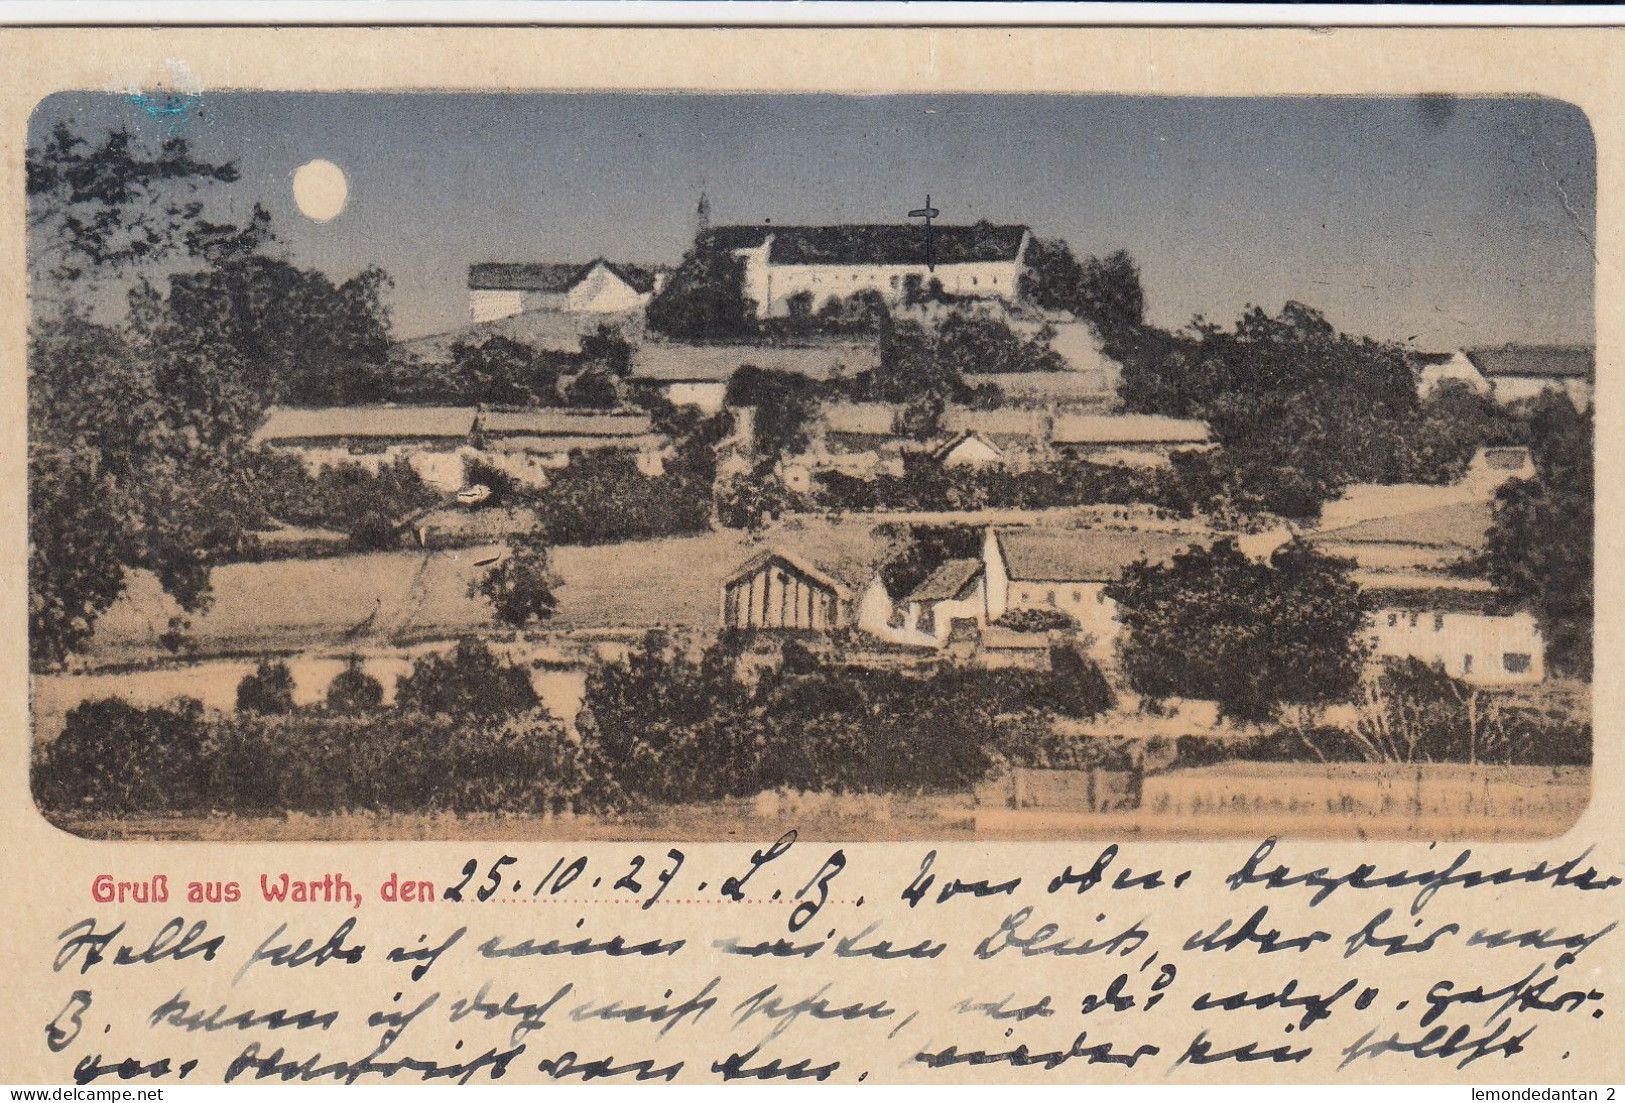 Gruß aus Warth, den 25.10.27. L. B. Von oben bezeichneter
Stelle habe ich einen weiten Blick, aber bis nach
B. kann ich doch nicht sehen, wo du nach
Nachricht von dir, wieder sein sollst.
lemondedantan 2